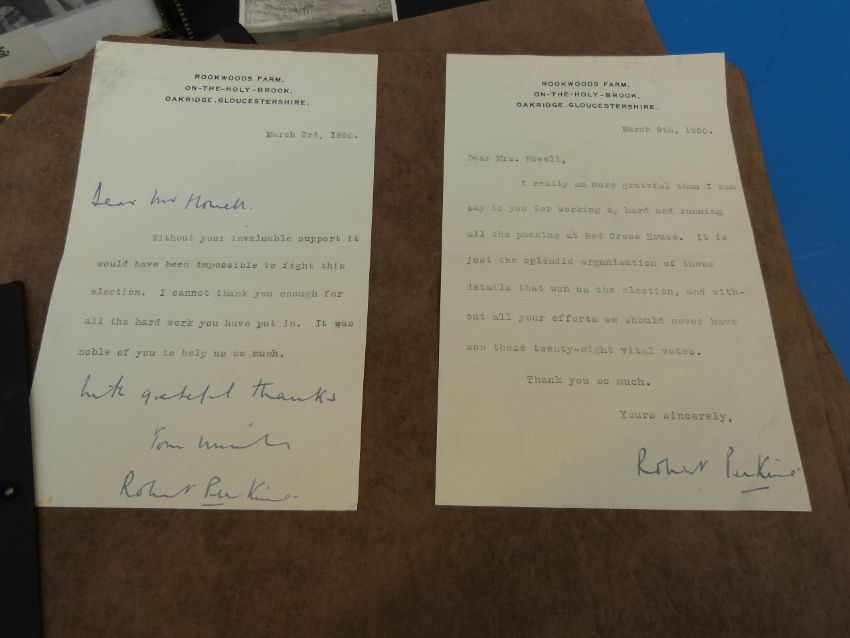 ROOKWOODS FARM,
ON-THE-HOLY-BROOK,
OAKRIDGE, GLOUCESTERSHIRE.
March 3rd, 1950.
Dear Mr Howell.
Without your invaluable support it
would have been impossible to fight this
election. I cannot thank you enough for
all the hard work you have put in. It was
noble of you to help us so much.
with grateful thanks
Robert Perkins
ROOKWOODS FARM,
ON-THE-HOLY-BROOK,
OAKRIDGE, GLOUCESTERSHIRE.
March 8th, 1950.
Dear Mrs. Howell,
I really am more grateful than I can
say to you for working so hard and running
all the packing at Red Cross House. It is
just the splendid organisation of these
details that won us the election, and with-
out all your efforts we should never have
won those twenty-eight vital votes.
Thank you so much.
Yours sincerely,
Robert Perkins